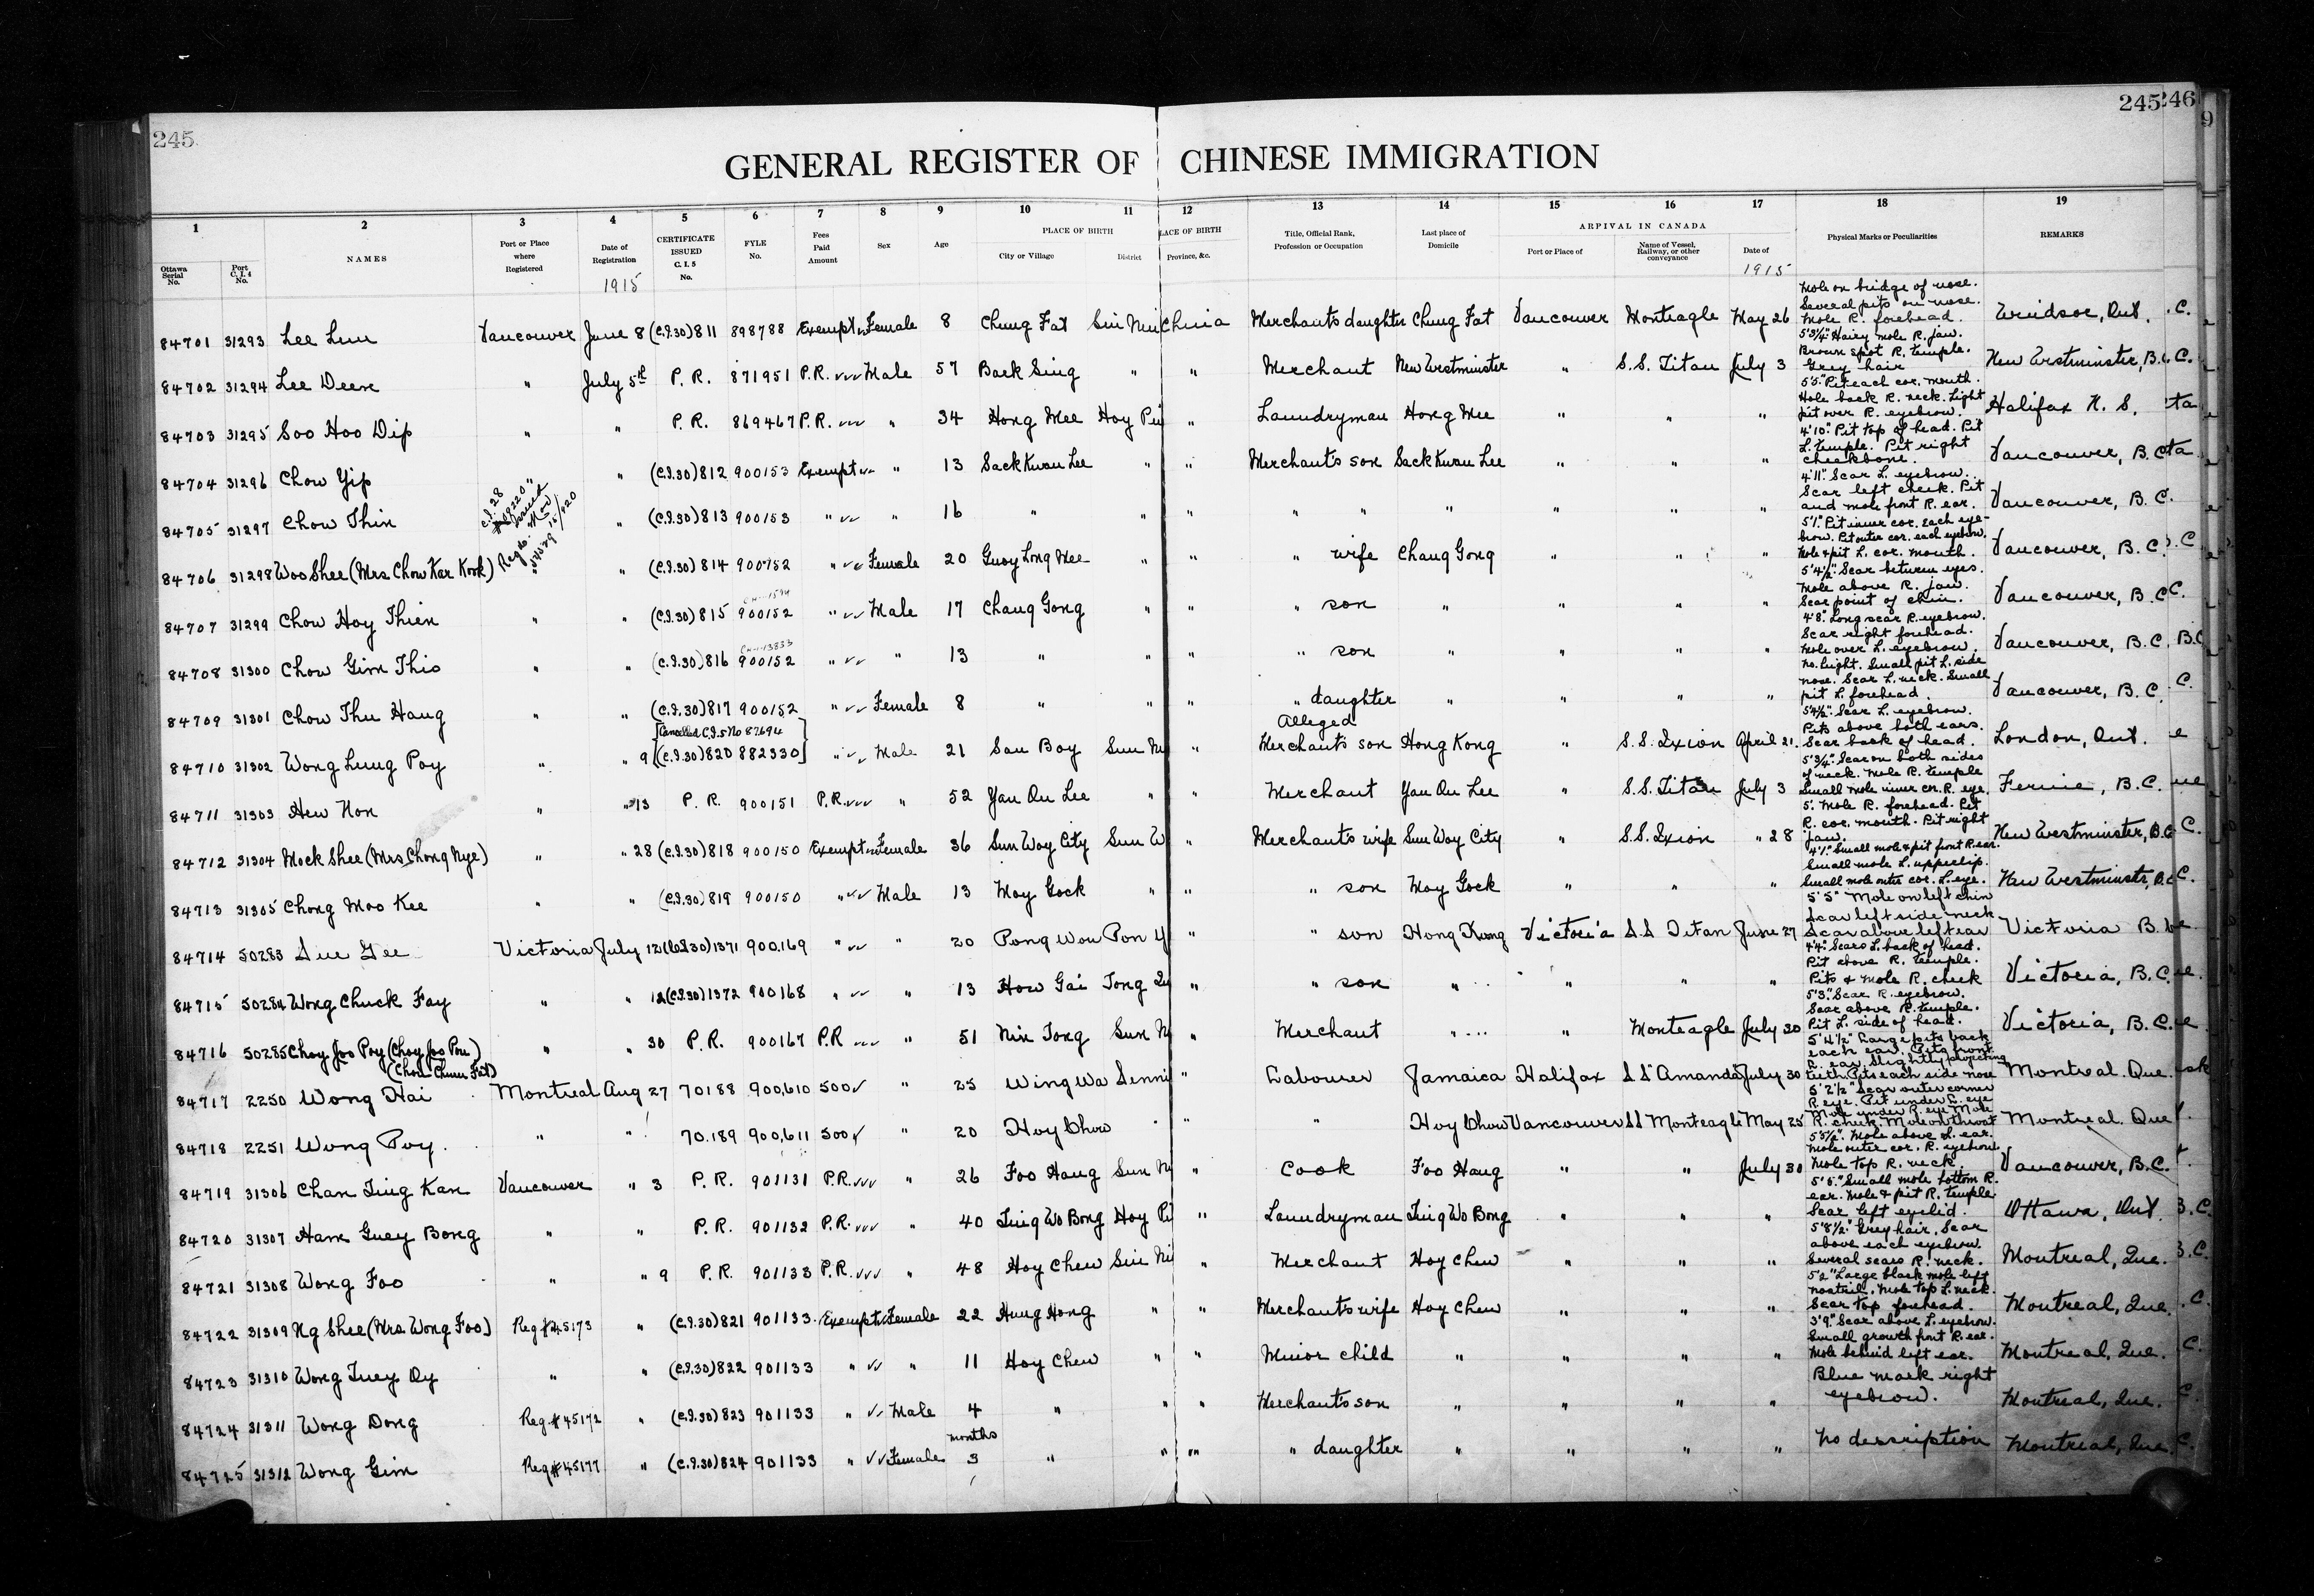 245
245
246
9
GENERAL REGISTER OF CHINESE IMMIGRATION
1 2 3 4 5 6 7 8 9 10 11 12 13 14 15 16 17 18 19
Ottawa Serial No. Port C. I. 4 No. NAMES Port or Place where Registered Date of Registration CERTIFICATE ISSUED C. I. 5 No. FYLE No. Fees Paid Amount Sex Age PLACE OF BIRTH City or Village District PLACE OF BIRTH Province, &c. Title, Official Rank, Profession or Occupation Last place of Domicile ARRIVAL IN CANADA Port or Place of Name of Vessel, Railway, or other conveyance Date of Physical Marks or Peculiarities REMARKS
1915 1915
84701 31293 Lee Lun Vancouver June 8 (C.I.30) 811 898788 Exempt Female 8 Chung Fat Sin Nin China Merchants daughter Chung Fat Vancouver Monteagle May 26 Mole on bridge of nose. Several pits on nose. Mole R. forehead. Windsor, Ont.
84702 31294 Lee Deen " July 5th P. R. 871951 P.R. Male 57 Back Sing " " Merchant New Westminster " S.S. Titan July 3 5'3¼" Hairy mole R. jaw. Brown spot R. temple. Grey hair New Westminster, B.C.
84703 31295 Soo Hoo Dip " " P. R. 869467 P.R. " 34 Hong Mee Hoy Pin " Laundryman Hong Mee " " " 5'5" Pit each cor. mouth. Hole back R. neck. Light pit over R. eyebrow. Halifax N. S.
84704 31296 Chow Yip " (C.I.30) 812 900153 Exempt " 13 Sack Kwan Lee " " Merchants son Sack Kwan Lee " " " 4'10" Pit top of head. Pit L. temple. Pit right cheekbone. Vancouver, B.C.
84705 31297 Chow Thin C.I. 28 issued Nov 15/20 Reg no. " (C.I.30) 813 900153 " " 16 " " " " " " " " " 4'11" Scar L. eyebrow. Scar left cheek. Pit and mole front R. ear. Vancouver, B. C.
84706 31298 Woo Shee (Mrs Chow Kar Kook) " " (C.I.30) 814 900152 " Female 20 Guoy Long Mee " " " wife Chang Gong " " " 5'1" Pit inner cor. each eyebrow. Pit outer cor. each eyebrow. Mole & pit L. cor. mouth. Vancouver, B. C.
84707 31299 Chow Hoy Thien " " (C.I.30) 815 900152 " Male 17 Chang Gong " " " son " " " " 5'4½" Scar between eyes. Mole above R. jaw. Scar point of chin. Vancouver, B. C.
84708 31300 Chow Gim Thio " " (C.I.30) 816 900152 " " 13 " " " " son " " " " 4'8" Long scar R. eyebrow. Scar right forehead. Mole over L. eyebrow. Vancouver, B. C.
84709 31301 Chow Thu Hang " " (C.I.30) 817 900152 " Female 8 " " " " daughter " " " " No hight. Small pit L. side nose. Scar L. neck. Small pit L. forehead. Vancouver, B. C.
84710 31302 Wong Lung Poy " " 9 [Cancelled C.I.5 No 87694 (C.I.30) 820 882330] " Male 21 San Boy Sun Ni " Alleged Merchant's son Hong Kong " S.S. Ixion April 21. 5'4½" Scar L. eyebrow. Pits above both ears. Scar back of head. London, Ont.
84711 31303 Hew Non " " 13 P. R. 900151 P.R. " 52 Yan On Lee " " Merchant Yan On Lee " S.S. Titan July 3 5'3¼" Scar on both sides of neck. Mole R. temple Small mole inner cor. R. eye. Fernie, B. C.
84712 31304 Mock Shee (Mrs Chong Nye) " " 28 (C.I.30) 818 900150 Exempt Female 36 Sun Woy City Sun W " Merchant's wife Sun Woy City " S.S. Ixion " 28 5'. Mole R. forehead. Pit R. cor. mouth. Pit right jaw. New Westminster, B.C.
84713 31305 Chong Moo Kee " " (C.I.30) 819 900150 " Male 13 Moy Gock " " " son Moy Gock " " " 4'1" Small mole & pit front R. ear. Small mole L. upper lip. Small mole outer cor. L. eye. New Westminstr, B.C.
84714 50283 Sue Gee Victoria July 12 (C.I.30) 1371 900,169 " " 20 Pong Wou Pon Y " " son Hong Kong Victoria S.S. Titan June 27 5'5" Mole on left chin Scar left side neck Scar above left ear Victoria B.
84715 50284 Wong Chuck Fay " " 12 (C.I.30) 1372 900168 " " 13 How Gai Tong Qu " " son " " " " 4'4" Scars L. back of head. Pit above R. temple. Pits & mole R. cheek Victoria, B.C.
84716 50285 Choy Joo Poy (Choy Joo Pou) (Chou Chuen Fat) " " 30 P. R. 900167 P.R " 51 Nin Tong Sun N " Merchant " " Monteagle July 30 5'3" Scar R. eyebrow. Scar above R. temple. Pit L. side of head. Victoria, B. C.
84717 2250 Wong Hai Montreal Aug 27 70188 900,610 500 " 25 Wing Wa Sunni " Labourer Jamaica Halifax S S Amanda July 30 5'4½" Large pits back each ear. Pits front R. ear. Slightly projecting teeth. Pits each side nose Montreal. Que.
84718 2251 Wong Poy. " " 70.189 900,611 500 " 20 Hoy Chow " " " Hoy Chow Vancouver SS Monteagle May 25 5'2½" Scar outer corner R. eye. Pit under L. eye Mole under R. eye Mole R. cheek. Mole on throat Montreal. Que
84719 31306 Chan Jing Kan Vancouver " 3 P. R. 901131 P.R. " 26 Foo Hang Sun N " Cook Foo Hang " " July 30 5'5½" Mole above L. ear. Mole outer cor. R. eyebrow. Mole top R. neck. Vancouver, B.C.
84720 31307 Ham Guey Bong " " P. R. 901132 P.R. " 40 Ting Wo Bong Hoy Pi " Laundryman Ting Wo Bong " " " 5'5" Small mole bottom R. ear. Mole & pit R. temple. Scar left eyelid. Ottawa, Ont.
84721 31308 Wong Foo " " 9 P. R. 901133 P.R. " 48 Hoy Chew Sin Ni " Merchant Hoy Chew " " " 5'8½" Grey hair, Scar above each eyebrow. Several scars R. neck. Montreal, Que.
84722 31309 Ng Shee (Mrs Wong Foo) Reg #45173 " (C.I.30) 821 901133 Exempt Female 22 Hung Hong " " Merchants wife Hoy Chew " " " 5'2" Large black mole left nostril. Mole top L. neck. Scar top forehead. Montreal, Que.
84723 31310 Wong Tuey Oy " " (C.I.30) 822 901133 " " 11 Hoy Chew " " Minor child " " " " 3'9" Scar above L. eyebrow. Small growth front R. ear. Mole behind left ear. Montreal, Que.
84724 31311 Wong Dong Reg. #45172 " (C.I.30) 823 901133 " Male 4 " " " Merchants son " " " " Blue mark right eyebrow. Montreal, Que.
84725 31312 Wong Gim Reg #45177 " (C.I.30) 824 901133 " Female months 3 " " " " daughter " " " " No description Montreal, Que.